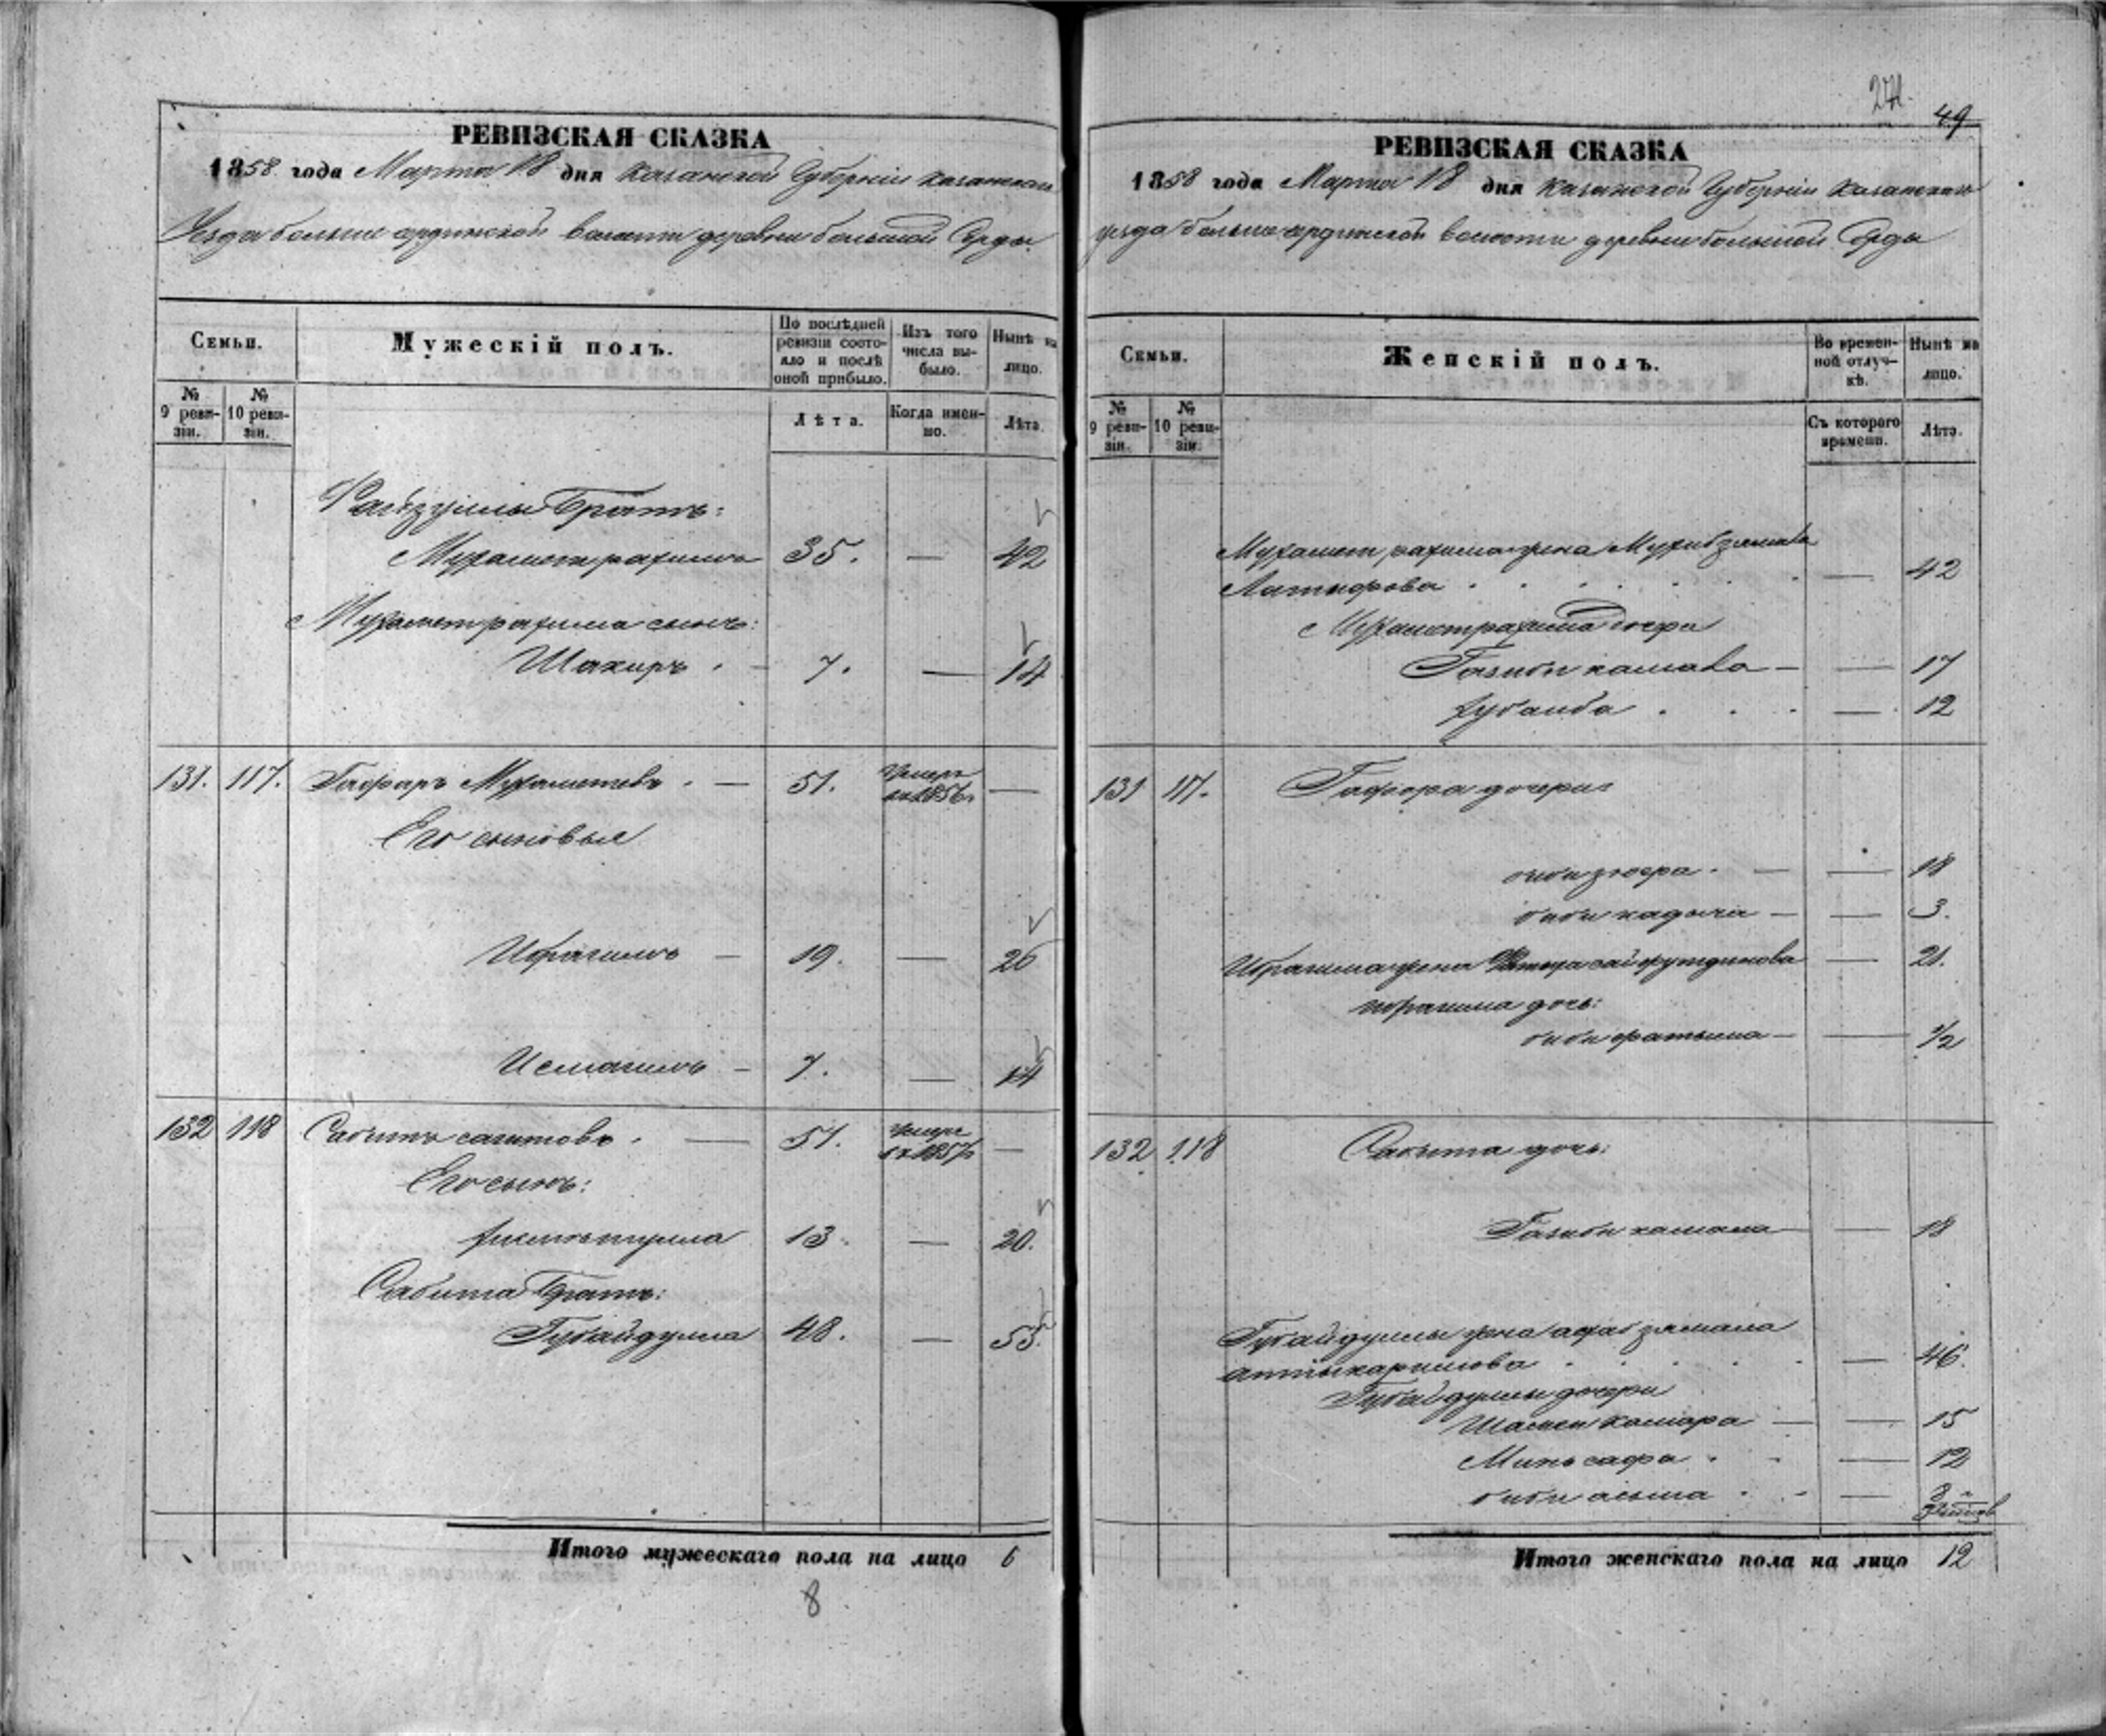 РЕВИЗСКАЯ СКАЗКА
1858 года Марта 18 дня Казанской Губернии Казанскаго
Уезда больше ординской волости деревни большой Орды
Семьи.
Мужескій полъ.
По послѣдней ревизіи состояло и послѣ оной прибыло.
Изъ того числа выбыло.
Нынѣ на лицо.
№ 9 ревизіи.
№ 10 ревизіи.
Лѣта.
Когда именно.
Лѣта.
Братъ:
Мухаметрахимъ 35. — 42
Мухаметрахима сынъ:
Шакиръ 7. — 14
131. 117. Гафаръ Мухаметевъ — 51. Умеръ въ 1856 —
Его сыновья
Ибрагимъ — 19. — 26
Исмагилъ — 7. — 14
132 118 Сабитъ сагитовъ — 51. Умеръ въ 1857 —
Его сынъ:
13 — 20.
Сабита Братъ:
Губайдулла 48. — 55.
Итого мужескаго пола на лицо 6
8
271.
49
РЕВИЗСКАЯ СКАЗКА
1858 года Марта 18 дня Казанской Губернии Казанскаго
уезда больше ординской волости деревни большой Орды
Семьи.
Женскій полъ.
Во временной отлучкѣ.
Нынѣ на лицо.
№ 9 ревизіи.
№ 10 ревизіи.
Съ котораго времени.
Лѣта.
Мухаметрахима жена
Латифова — 42
Мухаметрахима дочери
Газиби камала — — 17
— 12
131 117. Гафара дочери
биби зюгра — — 18
биби кадыча — — 3.
Ибрагима жена сайфутдинова — 21.
Ибрагима дочь:
биби фатыма — — 1/2
132 118 Сабита дочь:
Газиби камала — — 18
Губайдуллы жена
— 46.
Губайдуллы дочери
Шамси камара — — 15
Минь сафа — 12
биби — 3
Итого женскаго пола на лицо 12